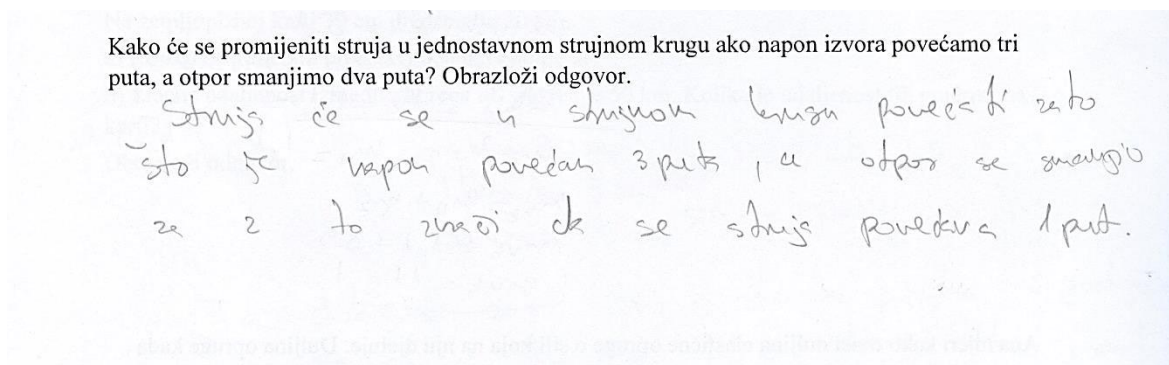 Kako će se promijeniti struja u jednostavnom strujnom krugu ako napon izvora povećamo tri
puta, a otpor smanjimo dva puta? Obrazloži odgovor.
Struja će se u strujnom krugu povećati zato
što je napon povećan 3 puta, a otpor se smanjio
za 2 to znači da se struja povećava 1 put.